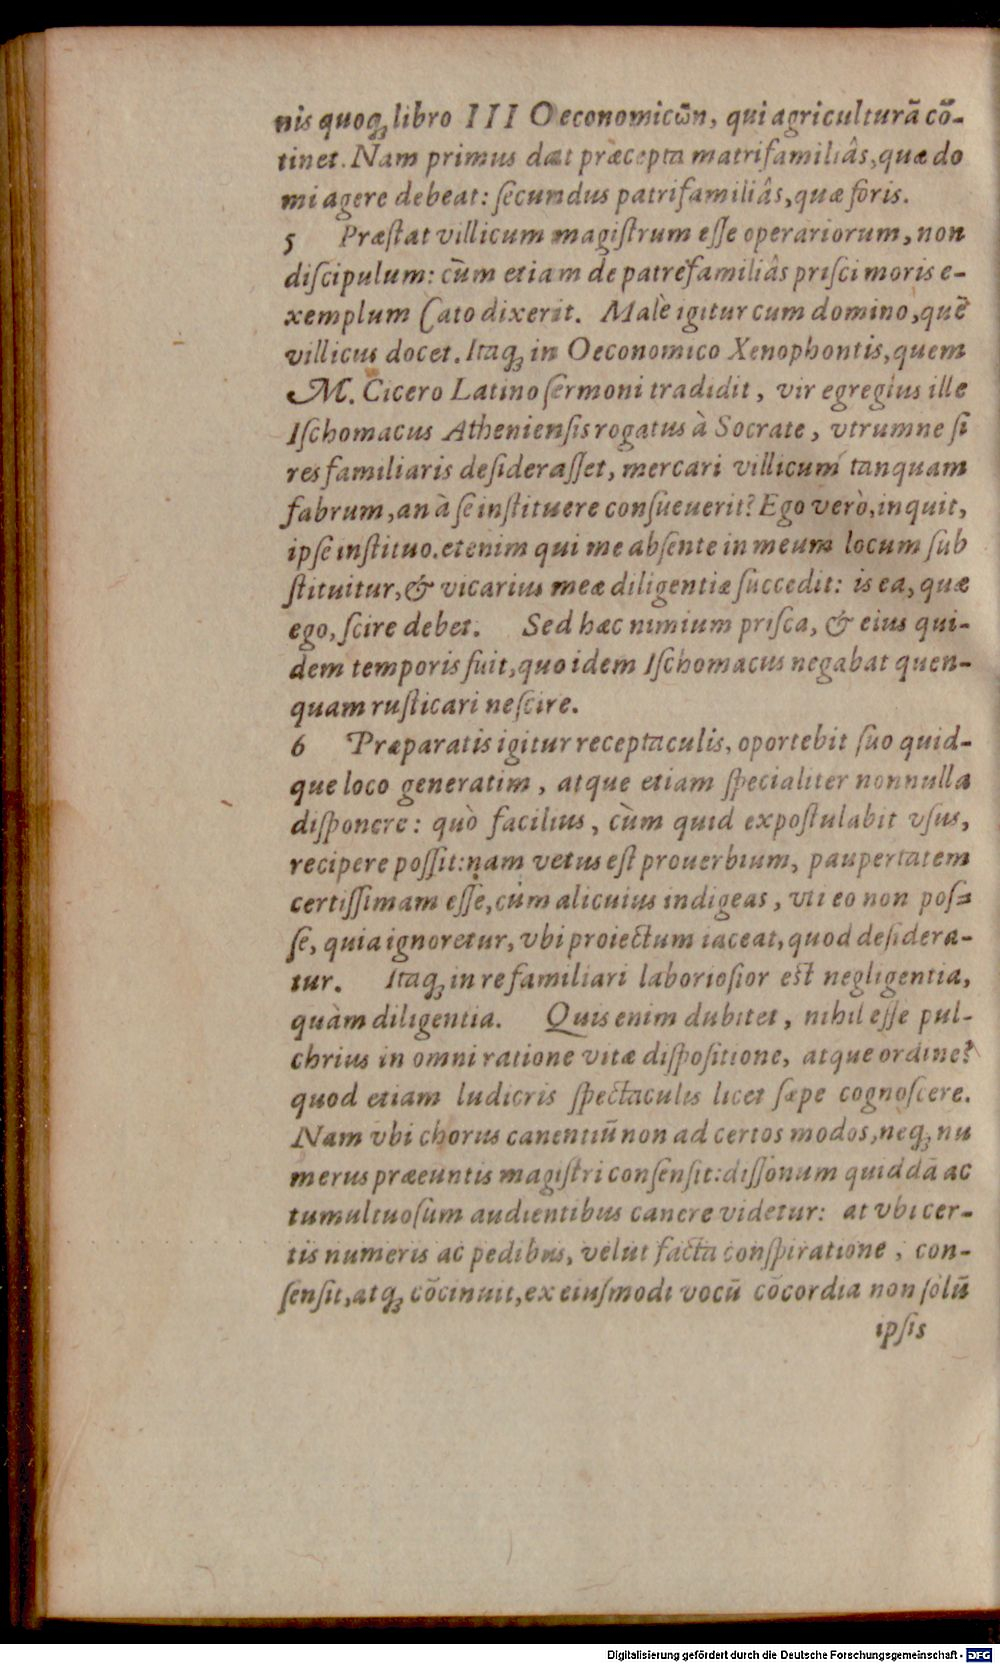 nis quoq́ꝫ libro III Oeconomicω̃n, qui agriculturã cõ-
tinet. Nam primus dat præcepta matrifamiliâs, quæ do
mi agere debeat: ſecundus patrifamiliâs, quæ foris.
5 Præſtat villicum magiſtrum eſſe operariorum, non
diſcipulum: cùm etiam de patrefamiliâs priſci moris e-
xemplum Cato dixerit. Malè igitur cum domino, quẽ
villicus docet. Itaqꝫ in Oeconomico Xenophontis, quem
M. Cicero Latino ſermoni tradidit, vir egregius ille
Iſchomacus Athenienſis rogatus à Socrate, vtrumne ſi
res familiaris deſideraſſet, mercari villicum tanquam
fabrum, an à ſe inſtituere conſueuerit? Ego verò, inquit,
ipſe inſtituo. etenim qui me abſente in meum locum ſub
ſtituitur, & vicarius meæ diligentiæ ſuccedit: is ea, quæ
ego, ſcire debet. Sed hæc nimium priſca, & eius qui-
dem temporis ſuit, quo idem Iſchomacus negabat quen-
quam ruſticari neſcire.
6 Præparatis igitur receptaculis, oportebit ſuo quid-
que loco generatim, atque etiam ſpecialiter nonnulla
diſponere: quò facilius, cùm quid expoſtulabit vſus,
recipere poſſit: nam vetus eſt prouerbium, paupertatem
certiſſimam eſſe, cùm alicuius indigeas, vti eo non poſ-
ſe, quia ignoretur, vbi proiectum iaceat, quod deſidera-
tur. Itaqꝫ in re familiari laborioſior eſt negligentia,
quàm diligentia. Quis enim dubitet, nihil eſſe pul-
chrius in omni ratione vitæ diſpoſitione, atque ordine?
quod etiam ludicris ſpectaculis licet ſæpe cognoſcere.
Nam vbi chorus canentiũ non ad certos modos, neqꝫ nu
merus præeuntis magiſtri conſenſit: diſſonum quiddã ac
tumultuoſum audientibus canere videtur: at vbi cer-
tis numeris ac pedibus, velut facta conſpiratione, con-
ſenſit, atqꝫ cõcinuit, ex eiuſmodi vocũ cõcordia non ſolũ
ipſis
Digitalisierung gefördert durch die Deutsche Forschungsgemeinschaft - DFG